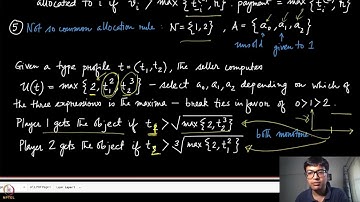 allocated to i if vi > max { t-i^(2), r}. payment = max { t-i^(2), r}
⑤ Not so common allocation rule: N = {1,2}, A = {a0, a1, a2}
unsold given to 1
Given a type profile t = (t1, t2), the seller computes
U(t) = max { 2, t1^2, t2^3 } - select a0, a1, a2 depending on which of
the three expressions is the maxima - break ties in favor of 0>1>2.
Player 1 gets the object if t1 > √max{2, t2^3}
both monotone
Player 2 gets the object if t2 > ∛max{2, t1^2}
NPTEL